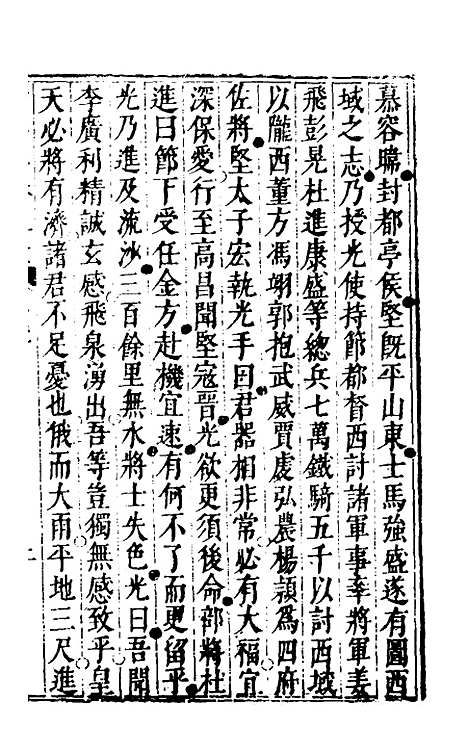 慕容暐封都亭侯堅旣平山東士馬強盛遂有圖西
域之志乃授光使持節都督西討諸軍事率將軍姜
飛彭晃杜進康盛等總兵七萬鐵騎五千以討西域
以隴西董方馮翊郭抱武威賈虔弘農楊頴爲四府
佐將堅太子宏執光手曰君器相非常必有大福宜
深保愛行至高昌聞堅寇晉光欲更須後命部將杜
進曰節下受任金方赴機宜速有何不了而更留乎
光乃進及流沙三百餘里無水將士失色光曰吾聞
李廣利精誠玄感飛泉湧出吾等豈獨無感致乎皇
天必將有濟諸君不足憂也俄而大雨平地三尺進